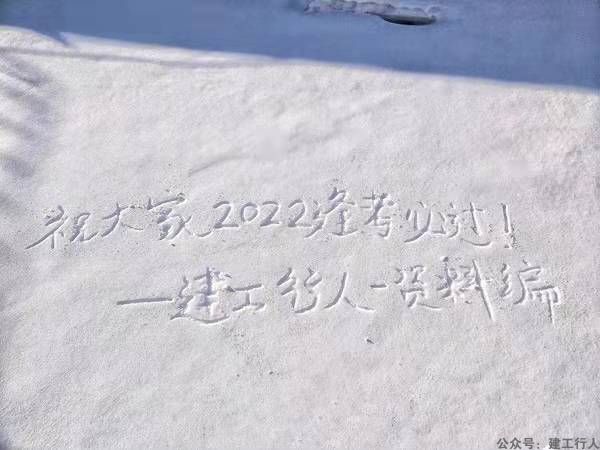 祝大家2022逢考必过!
—建工行人-资料编
公众号：建工行人